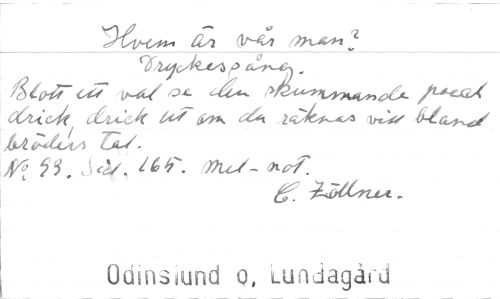 Hvem är vår man?
Dryckessång.
Blott ett val se den skummande pocal
drick, drick ut om du räknas vill bland
bröders tal.
No 99. Sid. 165. Mel-not.
C. Zöllner.
Odinslund o, Lundagård